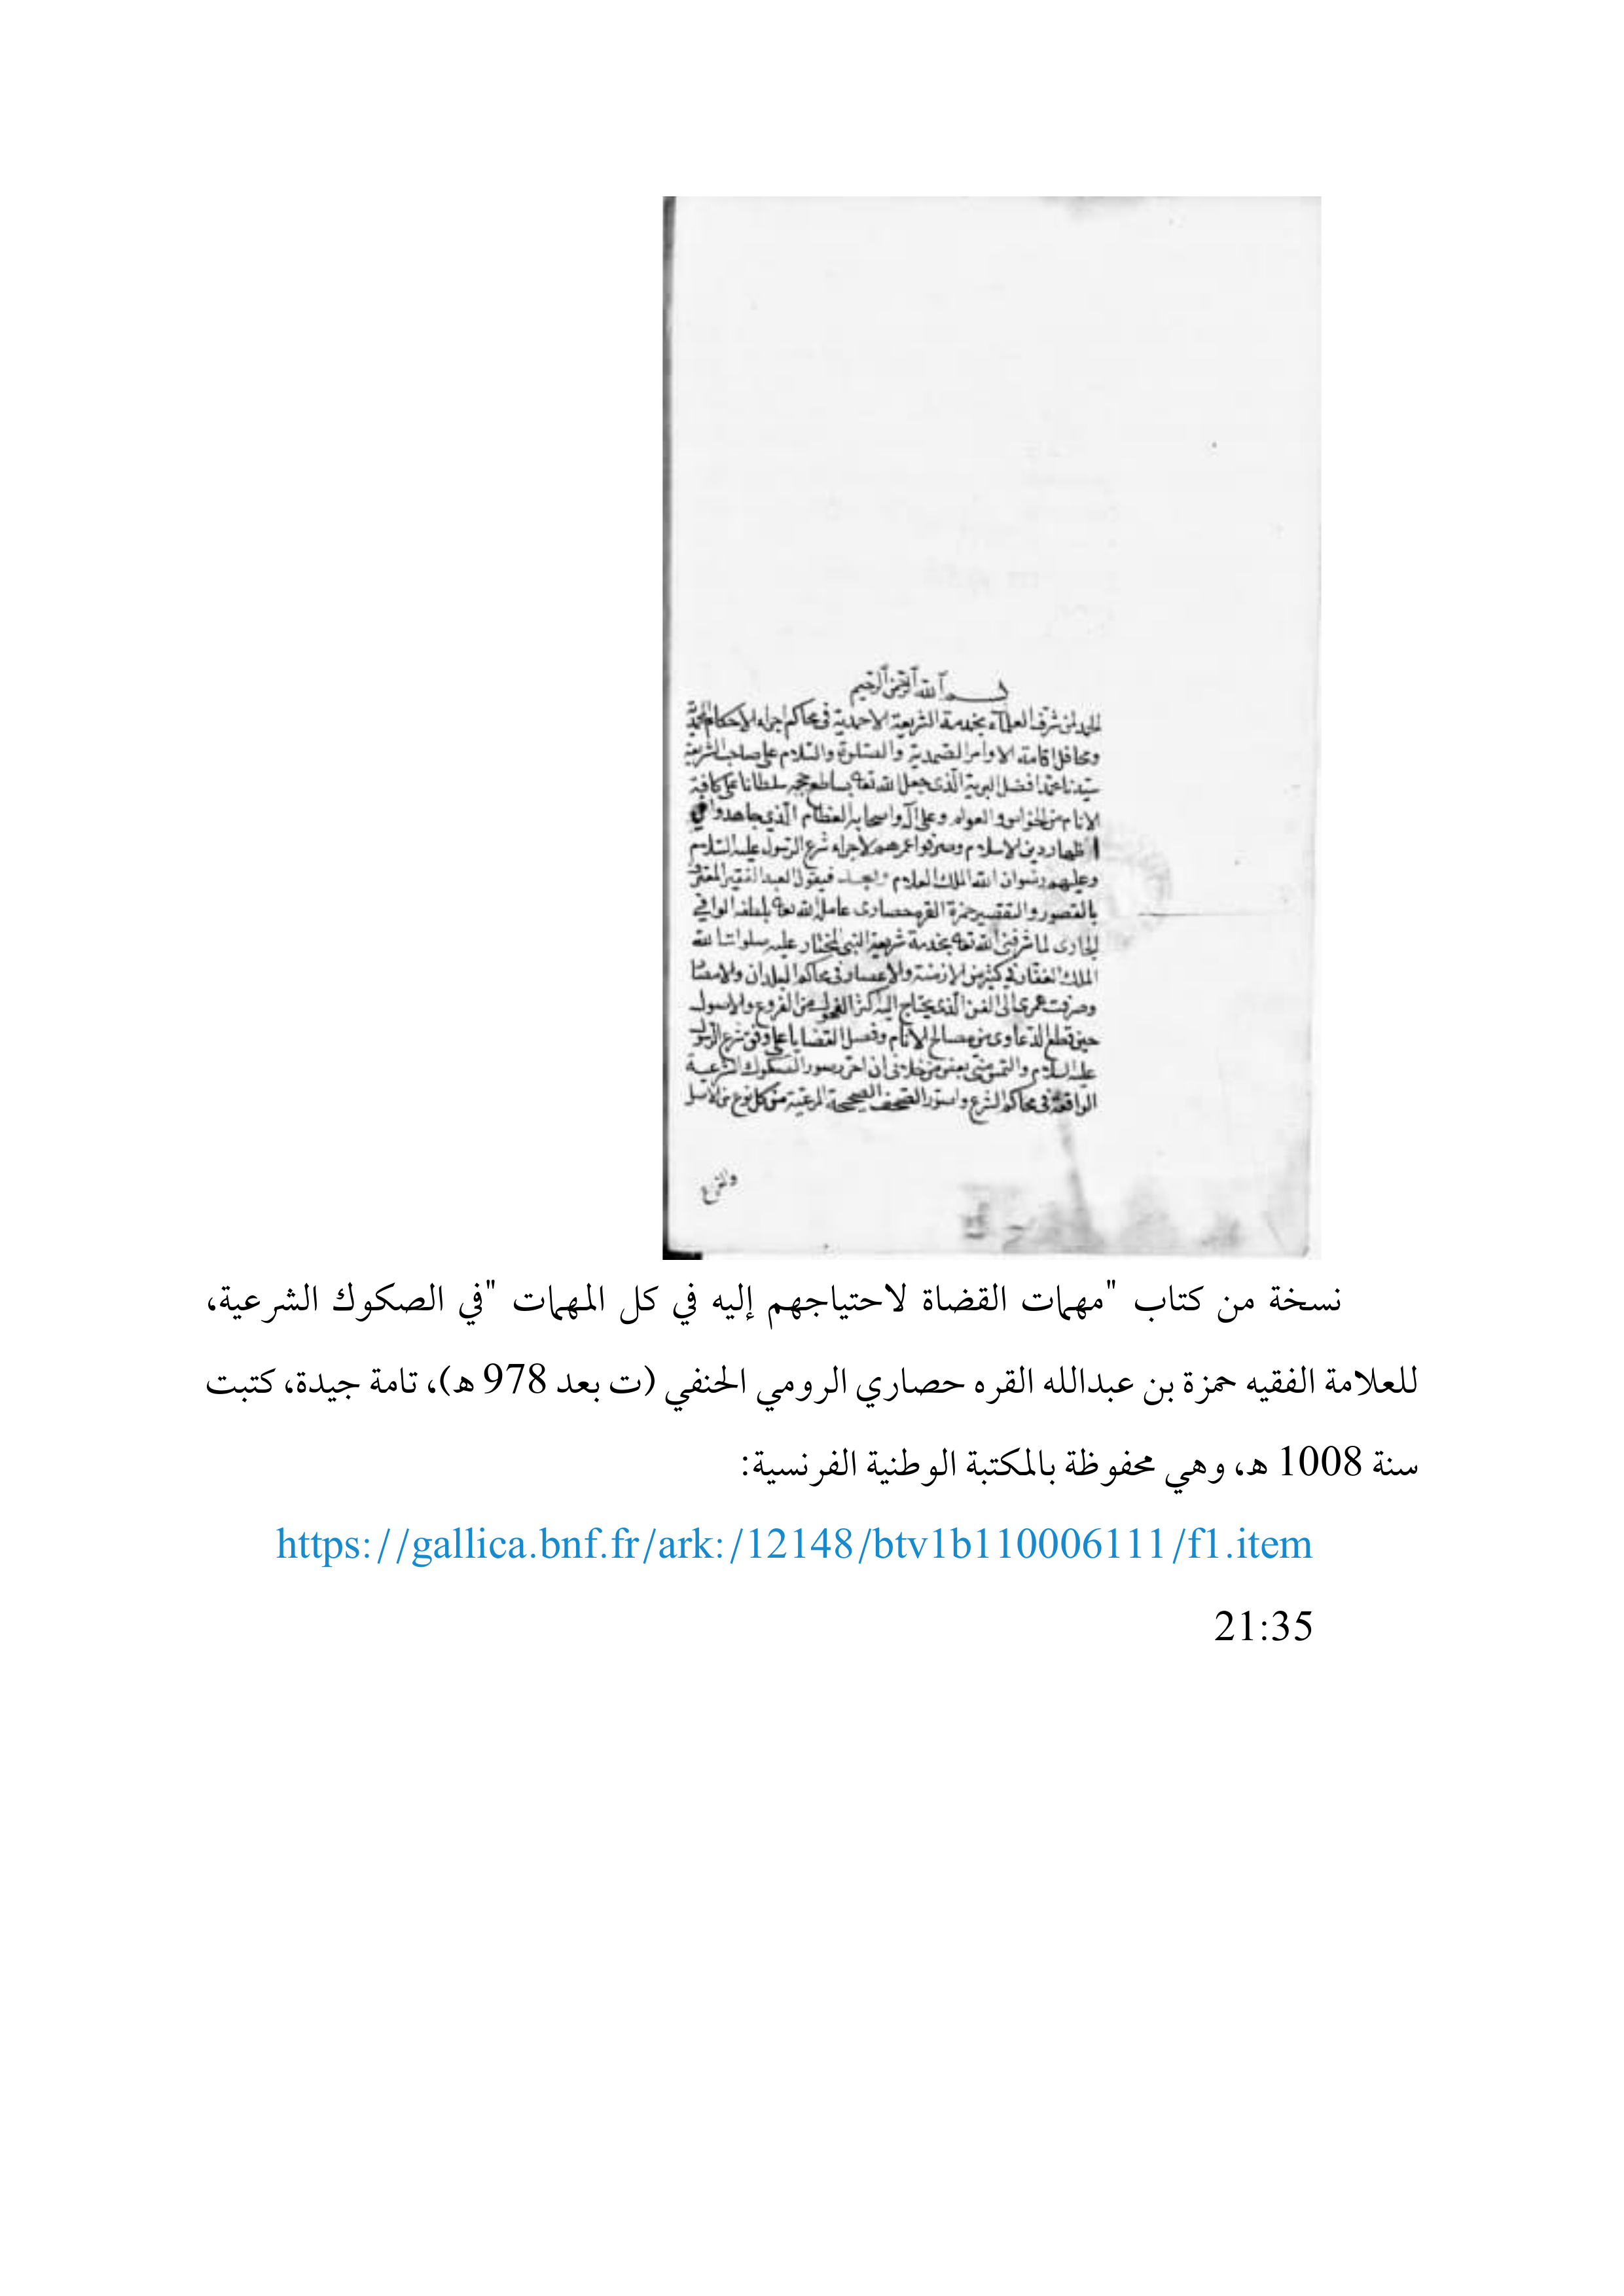 بسم الله الرحمن الرحيم
الحمد لمن شرف العلمآء بخدمة الشريعة الاحمدية فى محاكم اجراء الاحكام المحمدية
ومحافل اقامة الاوامر الصمدية والصلوة والسلام على صاحب الشريعة
سيدنا محمد افضل البرية الذى جعل الله تعا بساطع حججه سلطانا على كافة
الانام من الخواص والعوام وعلى آله واصحابه العظام الذى جاهدوا في
اظهار دين الاسلام وصرفوا عمرهم لاجراء شرع الرسول عليه السلام
وعليهم رضوان الله الملك العلام وبعد فيقول العبد الفقير المعترف
بالقصور والتقصير حمزة القره حصارى عامله الله تعا بلطفه الوافي
الجارى لما شرفنى الله تعا بخدمة شريعة النبى المختار عليه صلوات الله
الملك الغفار في كثير من الازمنة والاعصار فى محاكم البلدان والامصار
وصرفت عمرى الى الفن الذى يحتاج اليه اكثر الفحول من الفروع والاصول
حين قطع الدعاوى من مصالح الانام وفصل القضايا على وفق شرع الرسول
عليه السلام والتمس منى بعض من خلانى ان احرر صور الصكوك الشرعية
الواقعة فى محاكم الشرع واسور الصحف الصحيحة المرعية من كل نوع من الاصل
والفرع
نسخة من كتاب "مهمات القضاة لاحتياجهم إليه في كل المهمات "في الصكوك الشرعية،
للعلامة الفقيه حمزة بن عبدالله القره حصاري الرومي الحنفي (ت بعد 978 هـ)، تامة جيدة، كتبت
سنة 1008 هـ، وهي محفوظة بالمكتبة الوطنية الفرنسية:
https://gallica.bnf.fr/ark:/12148/btv1b110006111/f1.item
21:35